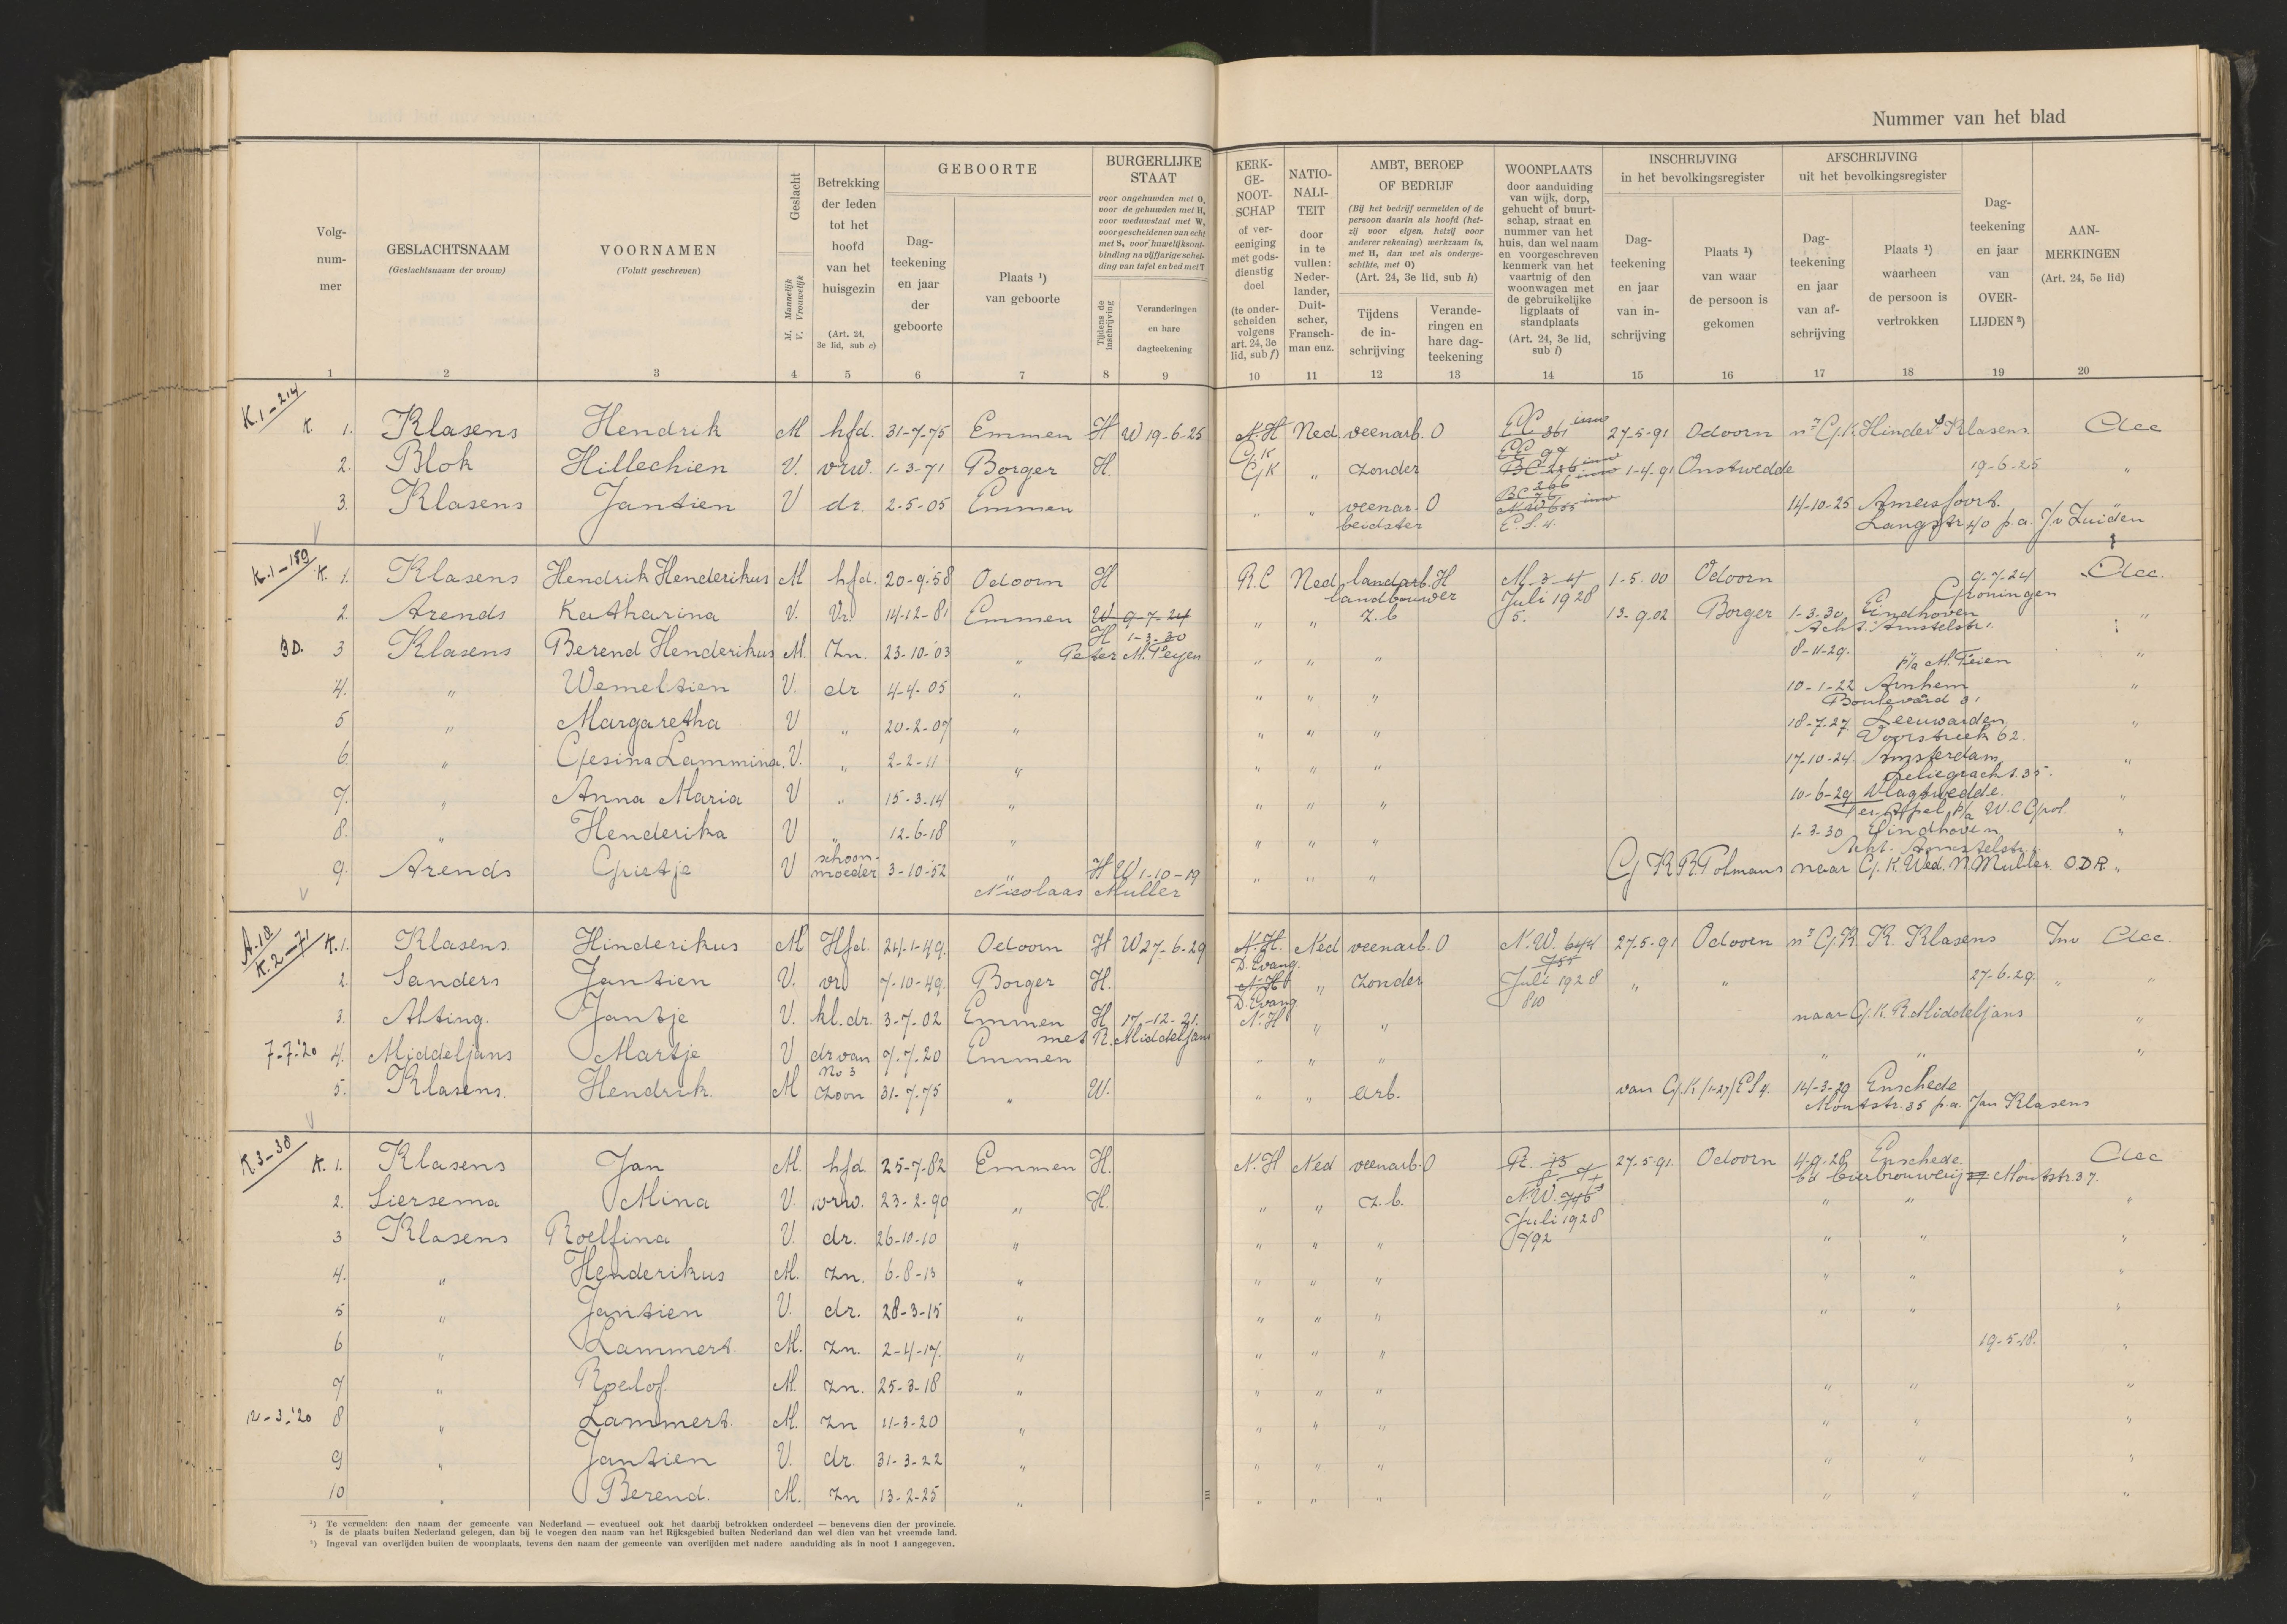 Nummer van het blad
Volg-
num-
mer
GESLACHTSNAAM
(Geslachtsnaam der vrouw)
VOORNAMEN
(Voluit geschreven)
Geslacht
M. Mannelijk
V. Vrouwelijk
Betrekking
der leden
tot het
hoofd
van het
huisgezin
(Art. 24,
3e lid, sub c)
GEBOORTE
Dag-
teekening
en jaar
der
geboorte
Plaats ¹)
van geboorte
BURGERLIJKE
STAAT
voor ongehuwden met O,
voor de gehuwden met H,
voor weduwstaat met W,
voor gescheidenen van echt
met S, voor huwelijksont-
binding na vijfjarige schei-
ding van tafel en bed met T
Tijdens de
inschrijving
Veranderingen
en hare
dagteekening
KERK-
GE-
NOOT-
SCHAP
of ver-
eeniging
met gods-
dienstig
doel
(te onder-
scheiden
volgens
art. 24, 3e
lid, sub f)
NATIO-
NALI-
TEIT
door
in te
vullen:
Neder-
lander,
Duit-
scher,
Fransch-
man enz.
AMBT, BEROEP
OF BEDRIJF
(Bij het bedrijf vermelden of de
persoon daarin als hoofd (het-
zij voor eigen, hetzij voor
anderer rekening) werkzaam is,
met H, dan wel als onderge-
schikte, met O)
(Art. 24, 3e lid, sub h)
Tijdens
de in-
schrijving
Verande-
ringen en
hare dag-
teekening
WOONPLAATS
door aanduiding
van wijk, dorp,
gehucht of buurt-
schap, straat en
nummer van het
huis, dan wel naam
en voorgeschreven
kenmerk van het
vaartuig of den
woonwagen met
de gebruikelijke
ligplaats of
standplaats
(Art. 24, 3e lid,
sub i)
INSCHRIJVING
in het bevolkingsregister
Dag-
teekening
en jaar
van in-
schrijving
Plaats ¹)
van waar
de persoon is
gekomen
AFSCHRIJVING
uit het bevolkingsregister
Dag-
teekening
en jaar
van af-
schrijving
Plaats ¹)
waarheen
de persoon is
vertrokken
Dag-
teekening
en jaar
van
OVER-
LIJDEN ²)
AAN-
MERKINGEN
(Art. 24, 5e lid)
1 2 3 4 5 6 7 8 9 10 11 12 13 14 15 16 17 18 19 20
K.1-214
K. 1. Klasens Hendrik M hfd. 31-7-75 Emmen H W 19-6-25 N.H Ned. veenarb. O 27-5-91 Odoorn Klasens
G.K
2. Blok Hillechien V. vrw. 1-3-71 Borger H. G.K " zonder 1-4-91 Onstwedde 19-6-25 "
3. Klasens Jantien V dr. 2-5-05 Emmen " " veenar- O 14-10-25 Amersfoort.
beidster E.S. 4. Langstr 40 p.a. J. v Zuiden
K.1-189
K. 1. Klasens Hendrik Henderikus M hfd. 20-9-'58 Odoorn H R.C Ned landarb. H 1-5-00 Odoorn 9-7-24
landbouwer Juli 1928 Groningen
2. Arends Katharina V. Vr. 14-12-81 Emmen W 9-7-24 " " z.b 5. 13-9-02 Borger 1-3-30 Eindhoven "
H 1-3-30
BD. 3 Klasens Berend Henderikus M. Zn. 23-10-'03 " " " " 8-11-29. "
4. " Wemeltien V. dr 4-4-05 " " " " 10-1-22 Arnhem "
Boulevard
5 " Margaretha V " 20-2-07 " " " " 18-7-27 Leeuwarden "
Voorstreek 62.
6. " Gesina Lammina V. " 2-2-11 " " " " 17-10-24 Amsterdam "
Leliegracht 35.
7. " Anna Maria V " 15-3-14 " " " " 10-6-29 Vlagtwedde. "
Ter Apel p/a
8. " Henderika V " 12-6-18 " " " " 1-3-30 Eindhoven "
9. Arends Grietje V schoon- 3-10-'52 " H W 1-10-19 " " " G.K R Tolmans naar G.K. Wed. N. Muller. O.D.R. "
moeder
Nicolaas Muller
A.10
K.2-71
K. 1. Klasens Hinderikus M Hfd. 24-1-49. Odoorn H W 27-6-29 N.H. Ned veenarb. O N.W. 644 27-5-91 Odoorn G.K. Klasens
D. Evang.
2. Sanders Jantien V. vr 7-10-49. Borger H. N.H " zonder Juli 1928 " " 27-6-29. " "
D. Evang. 810
3. Alting. Jantje V. kl.dr. 3-7-02 Emmen H 17-12-21. N.H " " naar G.K. R. Middeljans "
met R. Middeljans
7-7-'20 4. Middeljans Martje V dr van 7-7-20 Emmen " " " " " "
No 3
5. Klasens. Hendrik. M zoon 31-7-75 " W. " " arb. van G.K 14-3-29 Enschede
Montstr. 35 p.a. Jan Klasens
K 3-30
K. 1. Klasens Jan M. hfd. 25-7-82 Emmen H. N.H Ned veenarb. O 27-5-91. Odoorn 4-9-28 Enschede
bierbrouwerij Montstr. 37.
2. Siersema Mina V. vrw. 23-2-90 " H. " " z.b. N.W. " " "
Juli 1928
3 Klasens Roelfina V. dr. 26-10-10 " " " " 792 " " "
4. " Henderikus M. zn. 6-8-13 " " " " " " "
5 " Jantien V. dr. 28-3-15 " " " " " " "
6 " Lammert. M. zn. 2-4-17. " " " " 19-5-18. "
7 " Roelof. M. zn. 25-3-18 " " " " " " "
12-3-'20 8 " Lammert. M. zn 11-3-20 " " " " " " "
9 " Jantien V. dr. 31-3-22 " " " " " " "
10 " Berend. M. zn 13-2-25 " " " " " " "
¹) Te vermelden: den naam der gemeente van Nederland — eventueel ook het daarbij betrokken onderdeel — benevens dien der provincie.
Is de plaats buiten Nederland gelegen, dan bij te voegen den naam van het Rijksgebied buiten Nederland dan wel dien van het vreemde land.
²) Ingeval van overlijden buiten de woonplaats, tevens den naam der gemeente van overlijden met nadere aanduiding als in noot 1 aangegeven.